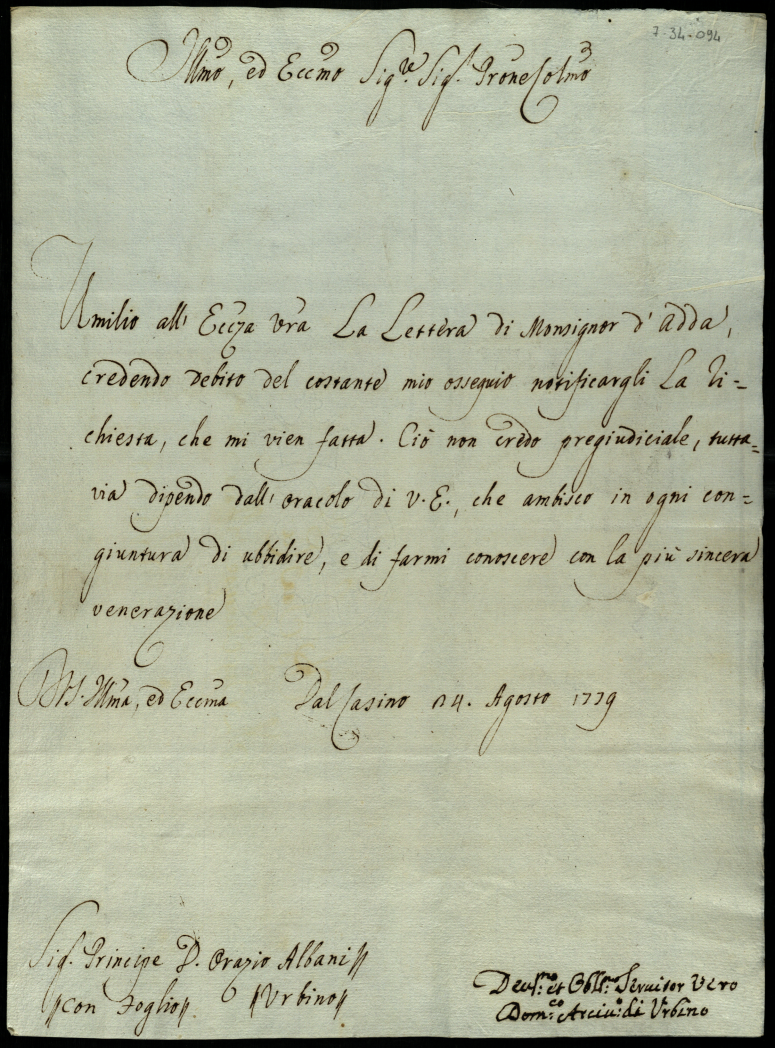 7-34-094
Illmo, ed Eccmo Sigre. Sig. Prone Colmo
Umilio all' Eccza Vra La Lettera di Monsignor d' Adda,
credendo debito del costante mio ossequio notificargli La ri=
chiesta, che mi vien fatta. Ciò non credo pregiudiciale, tutta=
via dipendo dall' oracolo di V. E., che ambisco in ogni con=
giuntura di ubbidire, e di farmi conoscere con la più sincera
venerazione
Di V.S. Illma, ed Eccma Dal Casino 24. Agosto 1739
Sig. Principe D. Orazio Albani//
//con Foglio// //Urbino//
Devmo. et Obllmo. Servitor Vero
Domco. Arciv.o di Urbino